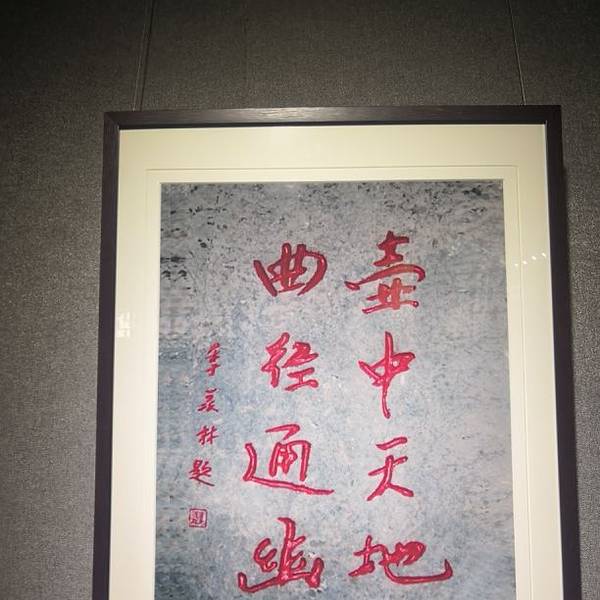 壶中天地
曲径通幽
季羡林题